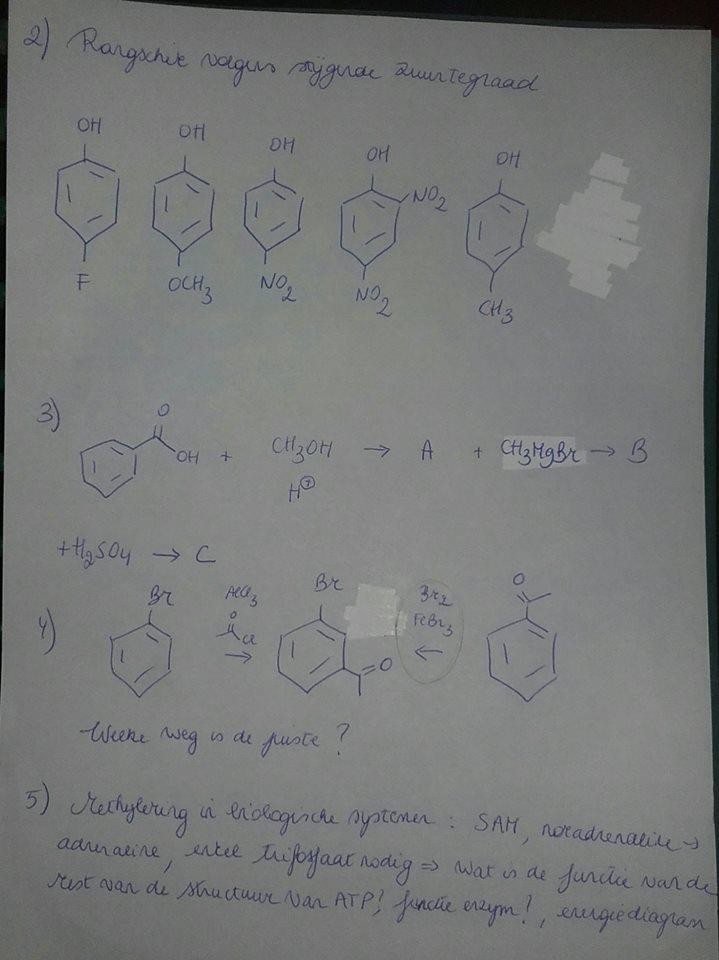 2) Rangschik volgens stijgende zuurtegraad
OH OH OH OH OH
NO2
F OCH3 NO2 NO2 CH3
3)
O
OH + CH3OH → A + CH3MgBr → B
H⊕
+ H2SO4 → C
4)
Br AlCl3 Br Br2 O
O Cl FeBr3
→ O ←
Welke weg is de juiste ?
5) Methylering in biologische systemen : SAM, noradrenaline →
adrenaline, enkel trifosfaat nodig ⇒ wat is de functie van de
rest van de structuur van ATP?, functie enzym?, energiediagram